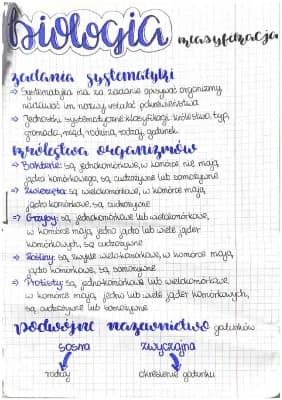 biologia klasyfikacja
zadania systematyki
⇒ Systematyka ma za zadanie opisywać organizmy,
nadawać im nazwy, ustalać pokrewieństwa
⇒ Jednostki systematyczne klasyfikacji: królestwo, typ,
gromada, rząd, rodzina, rodzaj, gatunek.
królestwa organizmów
⇒ Bakterie: są jednokomórkowe, w komórce nie mają
jądra komórkowego, są cudzożywne lub samożywne
⇒ Zwierzęta: są wielokomórkowe, w komórce mają
jądro komórkowe, są cudzożywne
⇒ Grzyby: są jednokomórkowe lub wielokomórkowe,
w komórce mają jedno jądro lub wiele jąder
komórkowych, są cudzożywne
⇒ Rośliny: są zwykle wielokomórkowe, w komórce mają
jądro komórkowe, są samożywne
⇒ Protisty: są jednokomórkowe lub wielokomórkowe,
w komórce mają jedno lub wiele jąder komórkowych,
są cudzożywne lub samożywne
podwójne nazewnictwo gatunków
sosna zwyczajna
rodzaj określenie gatunku